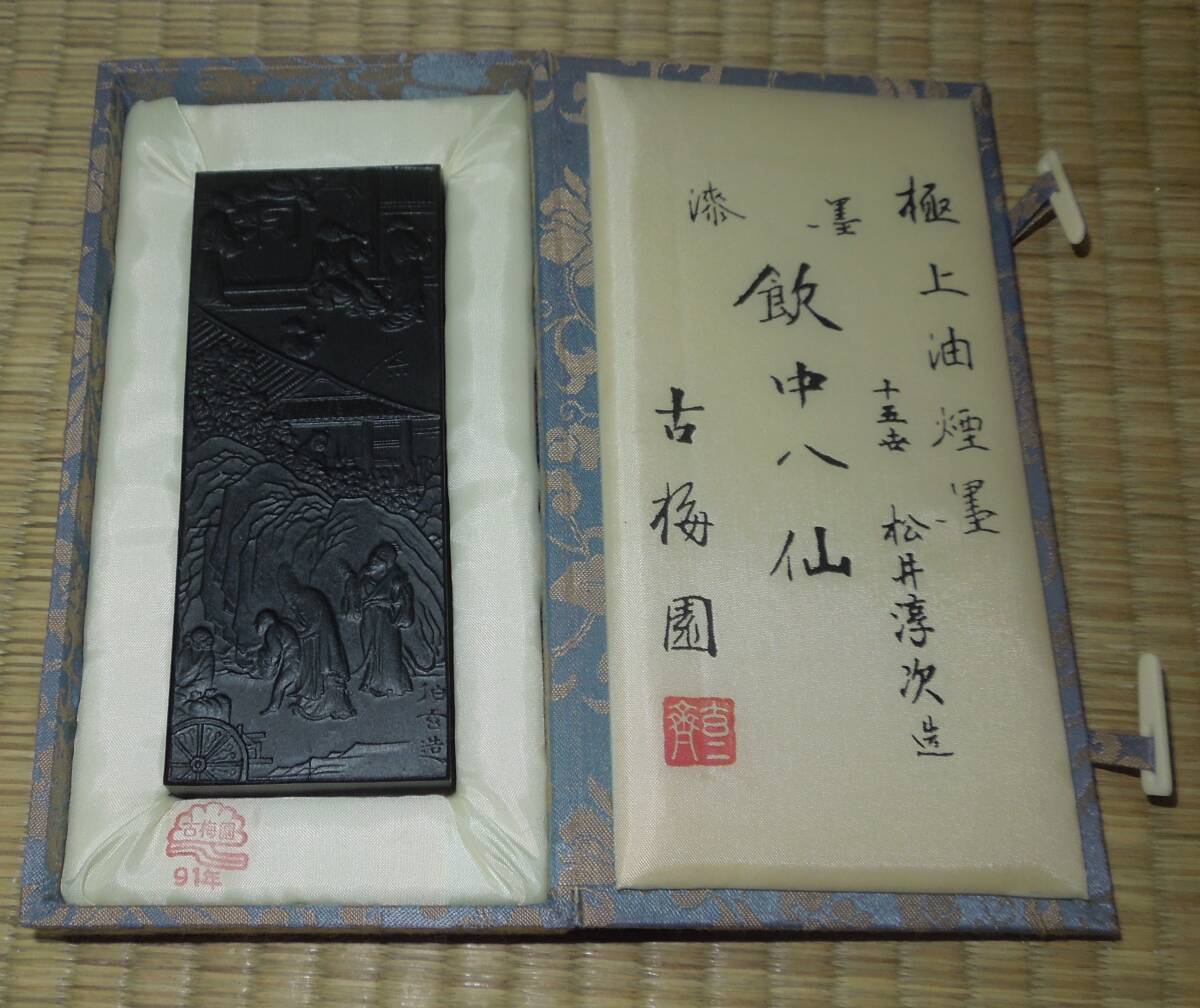 極上油煙墨
十五世 松井淳次造
漆 墨
飲中八仙
古梅園
古梅園
91年